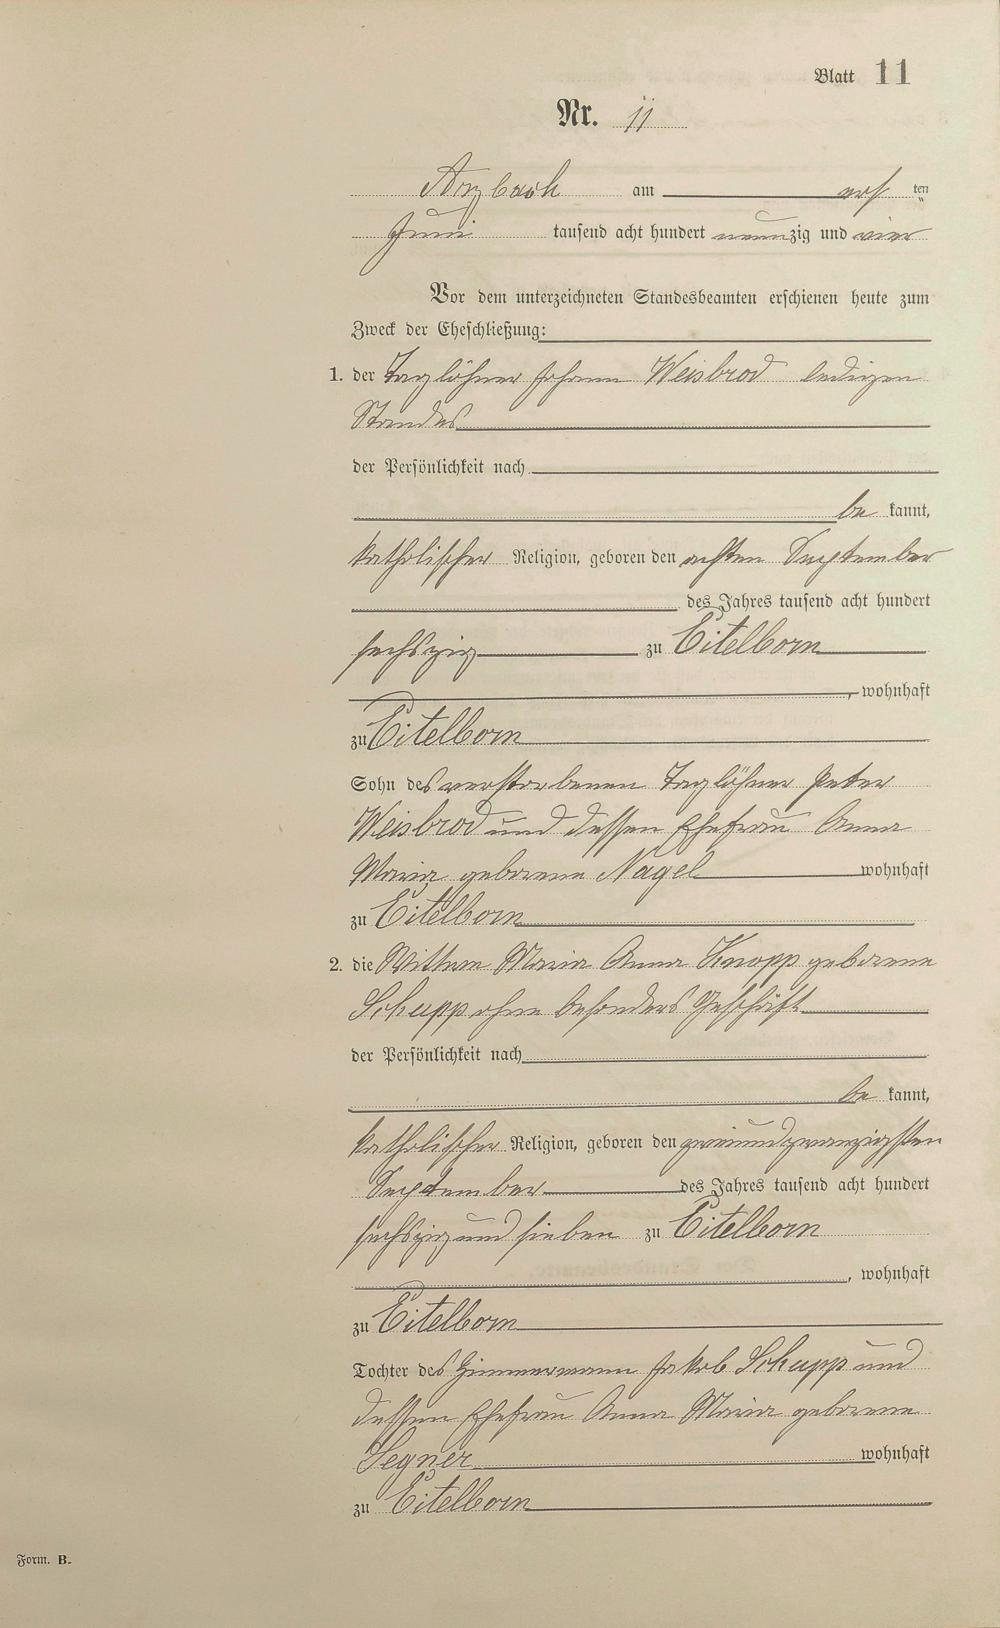 Blatt 11
Nr. 11
Arzbach am acht ten
Juni tausend acht hundert neunzig und vier
Vor dem unterzeichneten Standesbeamten erschienen heute zum
Zweck der Eheschließung:
1. der Taglöhner Johann Weisbrod ledigen
Standes
der Persönlichkeit nach
be kannt,
katholischer Religion, geboren den achten September
des Jahres tausend acht hundert
sechszig zu Eitelborn
, wohnhaft
zu Eitelborn
Sohn des verstorbenen Taglöhner Peter
Weisbrod und dessen Ehefrau Anna
Maria geborene Nagel wohnhaft
zu Eitelborn
2. die Wittwe Maria Anna Knopp geborene
Schupp ohne besonders Geschäft
der Persönlichkeit nach
be kannt,
katholischer Religion, geboren den zweiundzwanzigsten
September des Jahres tausend acht hundert
sechszig und sieben zu Eitelborn
, wohnhaft
zu Eitelborn
Tochter des Zimmermann Jakob Schupp und
dessen Ehefrau Anna Maria geborene
Segner wohnhaft
zu Eitelborn
Form. B.